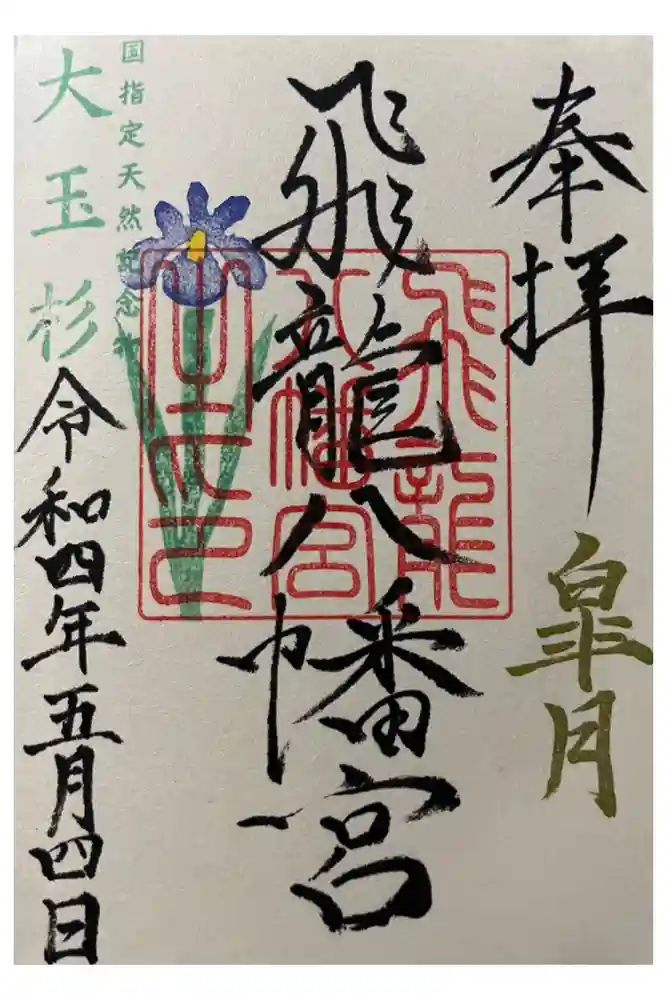 奉拝
皐月
飛龍八幡宮
飛龍
八幡宮
之印
国指定天然記念物
大玉杉
令和四年五月四日